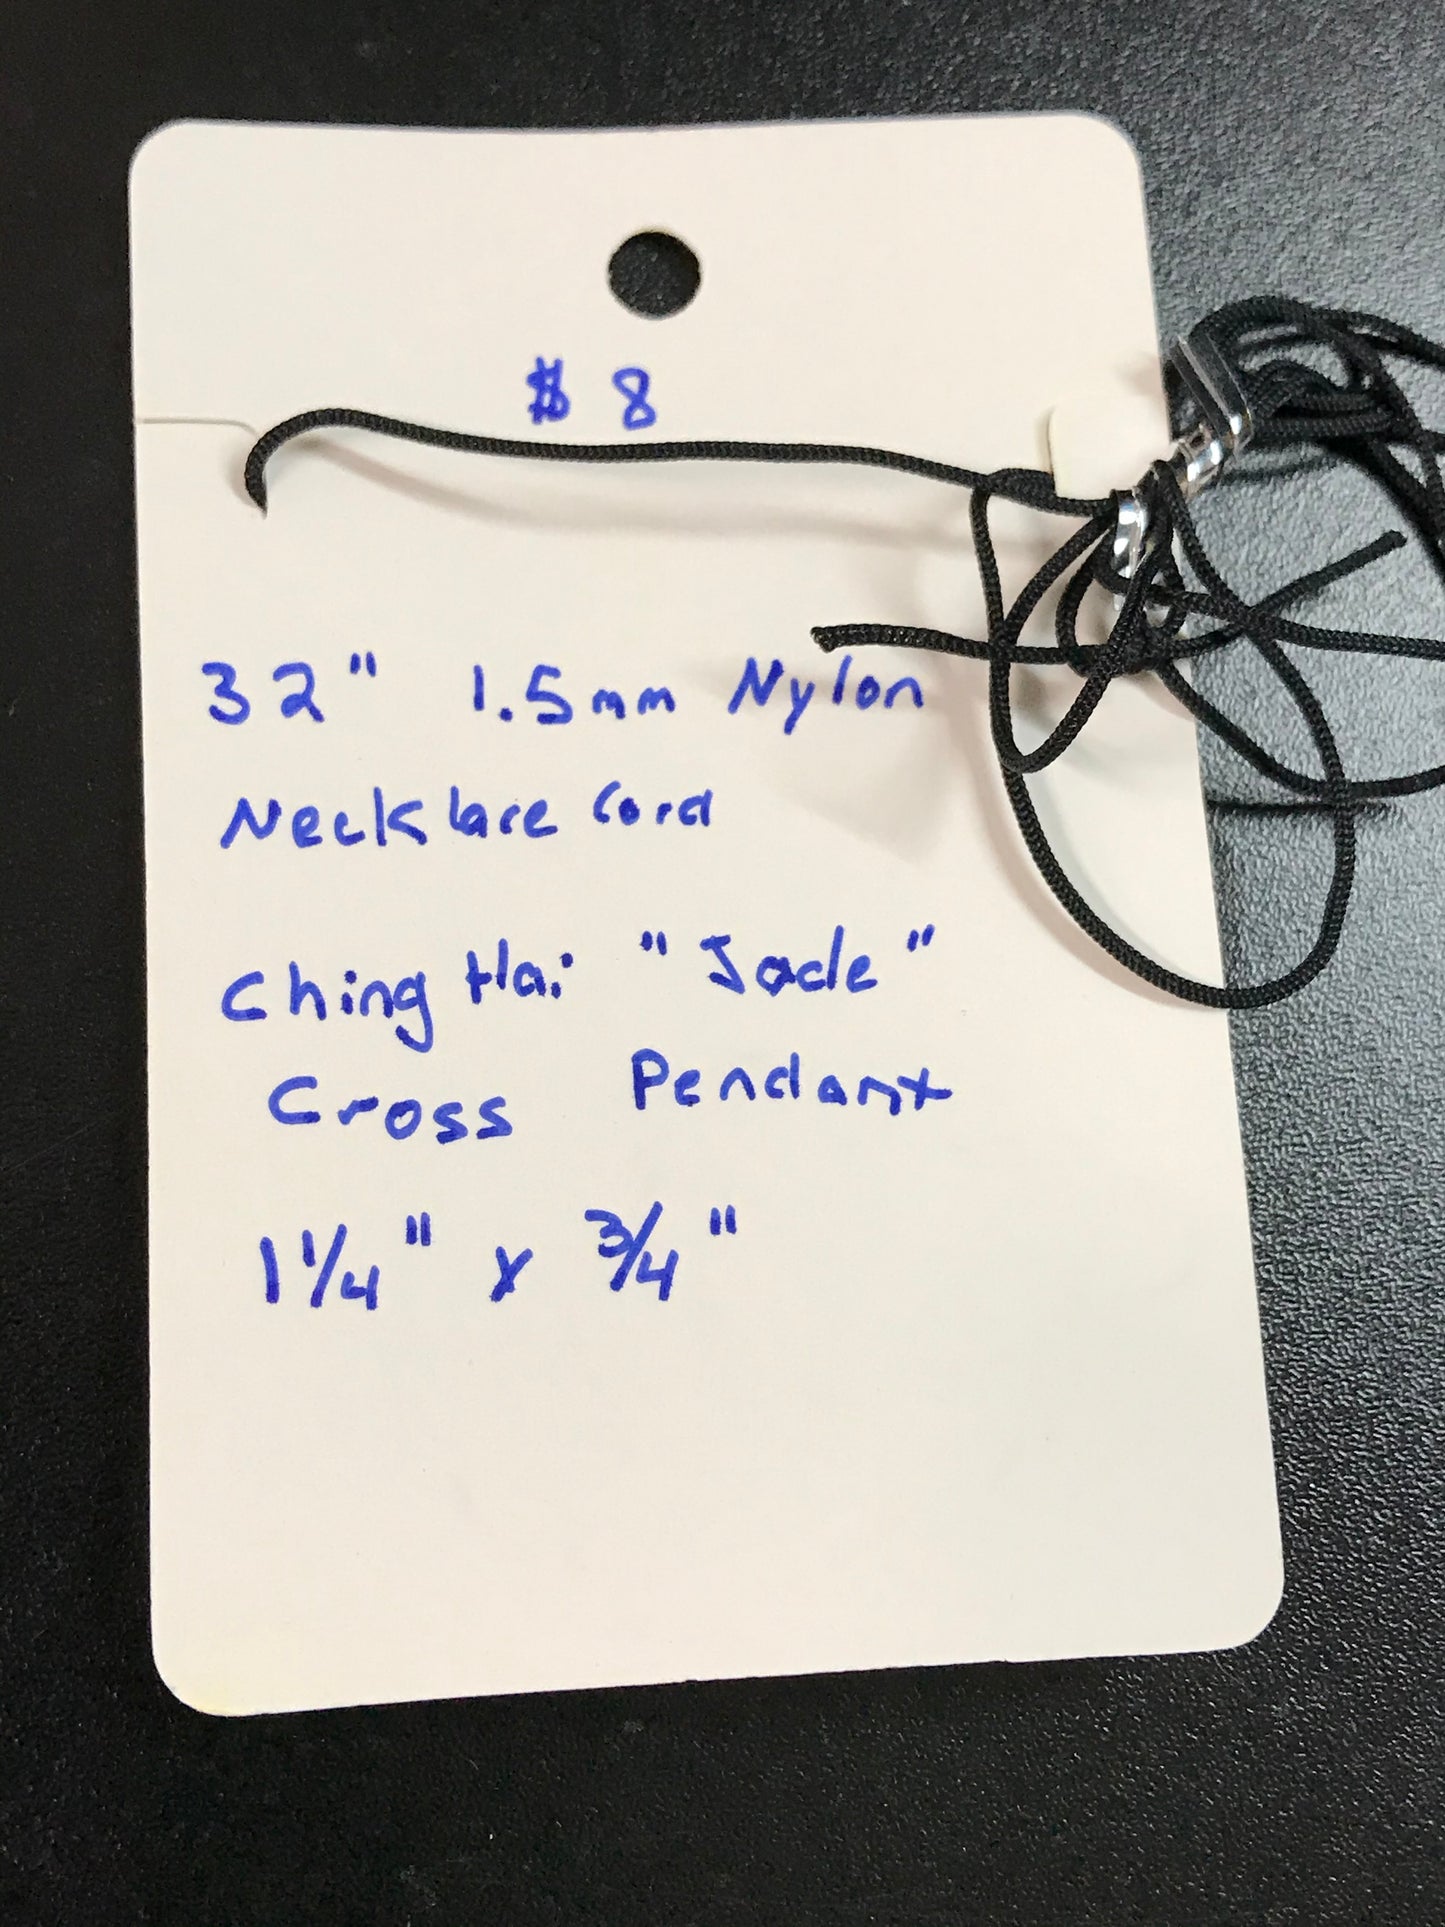 $ 8
32" 1.5mm Nylon
Necklace Cord
Ching Hai "Jade"
Cross Pendant
1 1/4" x 3/4"